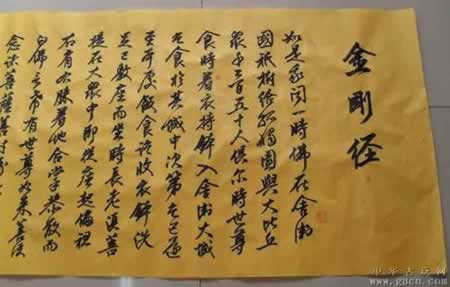 金剛经
如是我闻一時佛在舍衛
國祇树给孤獨園與大比丘
眾千二百五十人俱尔時世尊
食時着衣持鉢入舍衛大城
乞食於其城中次第乞已還
至本處飯食訖收衣鉢洗
足已敷座而坐時長老湏菩
提在大眾中即從座起偏袒
右肩右膝着地合掌恭敬而
白佛言希有世尊如来善護
念诸菩薩善付
中华古玩网
www.gucn.com